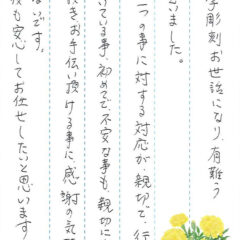 字彫刻お世話になり有難う
いました。
一つの事に対する対応が、親切で、行
いている事、初めてで、不安な事も、親切に
きお手伝い頂ける事に、感謝の気
ないです。
も安心してお任せしたいと思います